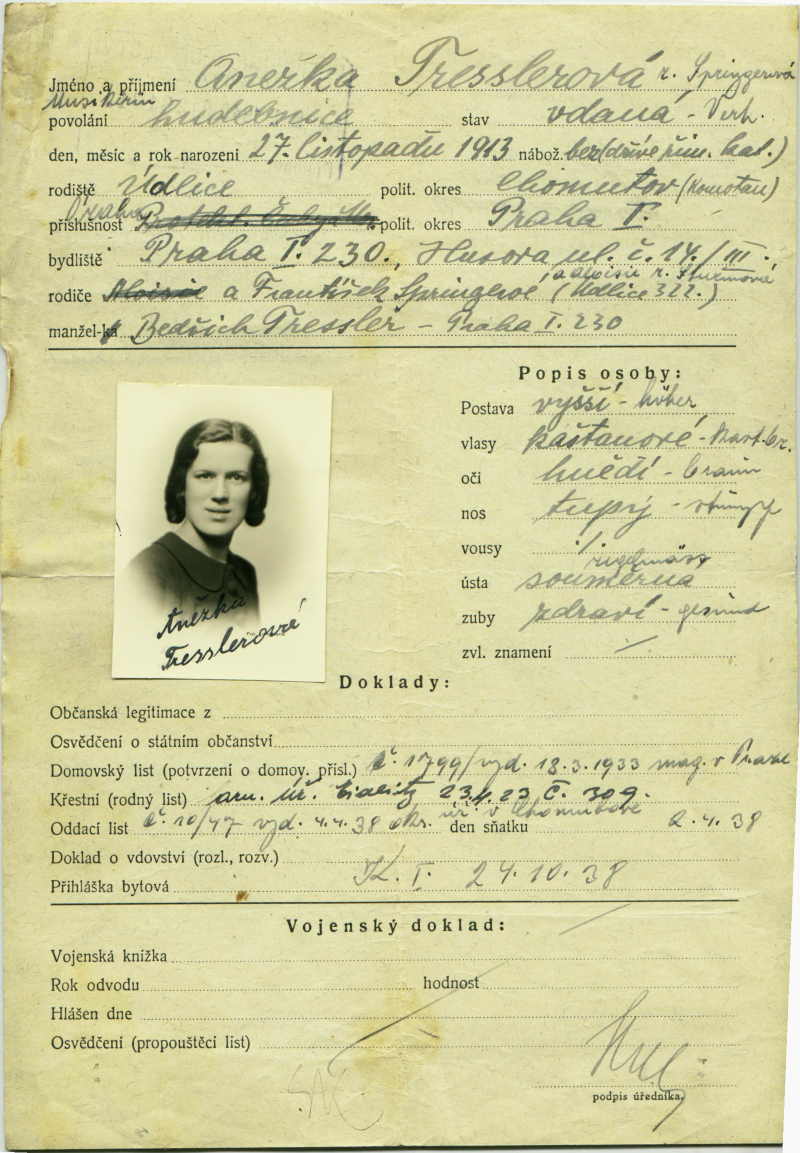 Jméno a příjmení Anežka Tresslerová r. Springerová
Musikerin
povolání hudebnice stav vdaná - Verh.
den, měsíc a rok narození 27. listopadu 1913 nábož. bez (dříve řím. kat.)
rodiště Údlice polit. okres Chomutov (Komotau)
příslušnost Praha polit. okres Praha I.
bydliště Praha I. 230., Husova ul. č. 14./III.
a Aloisie r.
rodiče Aloisie a František Springerové (Údlice 322.)
manžel-ka Bedřich Tressler - Praha I. 230
Popis osoby:
Postava vyšší - höher
vlasy kaštanové - kast. br.
oči hnědé - braun
nos tupý - stumpf
vousy /
regelmäss
ústa souměrná
zuby zdravé - gesund
zvl. znamení /
Anežka
Tresslerová
Doklady:
Občanská legitimace z
Osvědčení o státním občanství
Domovský list (potvrzení o domov. přísl.) č. 1799/vyd. 18.3.1933 mag. v Praze
Křestní (rodný list) č. 309.
Oddací list č. 10/47 vyd. 4.4.38 okr. úř. v Chomutově den sňatku 2.4.38
Doklad o vdovství (rozl., rozv.)
Přihláška bytová K. I. 24.10.38
Vojenský doklad:
Vojenská knížka
Rok odvodu hodnost
Hlášen dne
Osvědčení (propouštěcí list)
podpis úředníka.